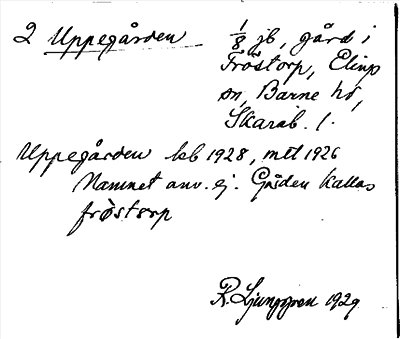 2 Uppegården 1/8 jb, gård i
Fröstorp, Elings
sn, Barne hd,
Skarab. l.
Uppegården lsb 1928, mtl 1926
Namnet anv. ej. Gården kallas
fröstorp
R. Ljunggren 1929